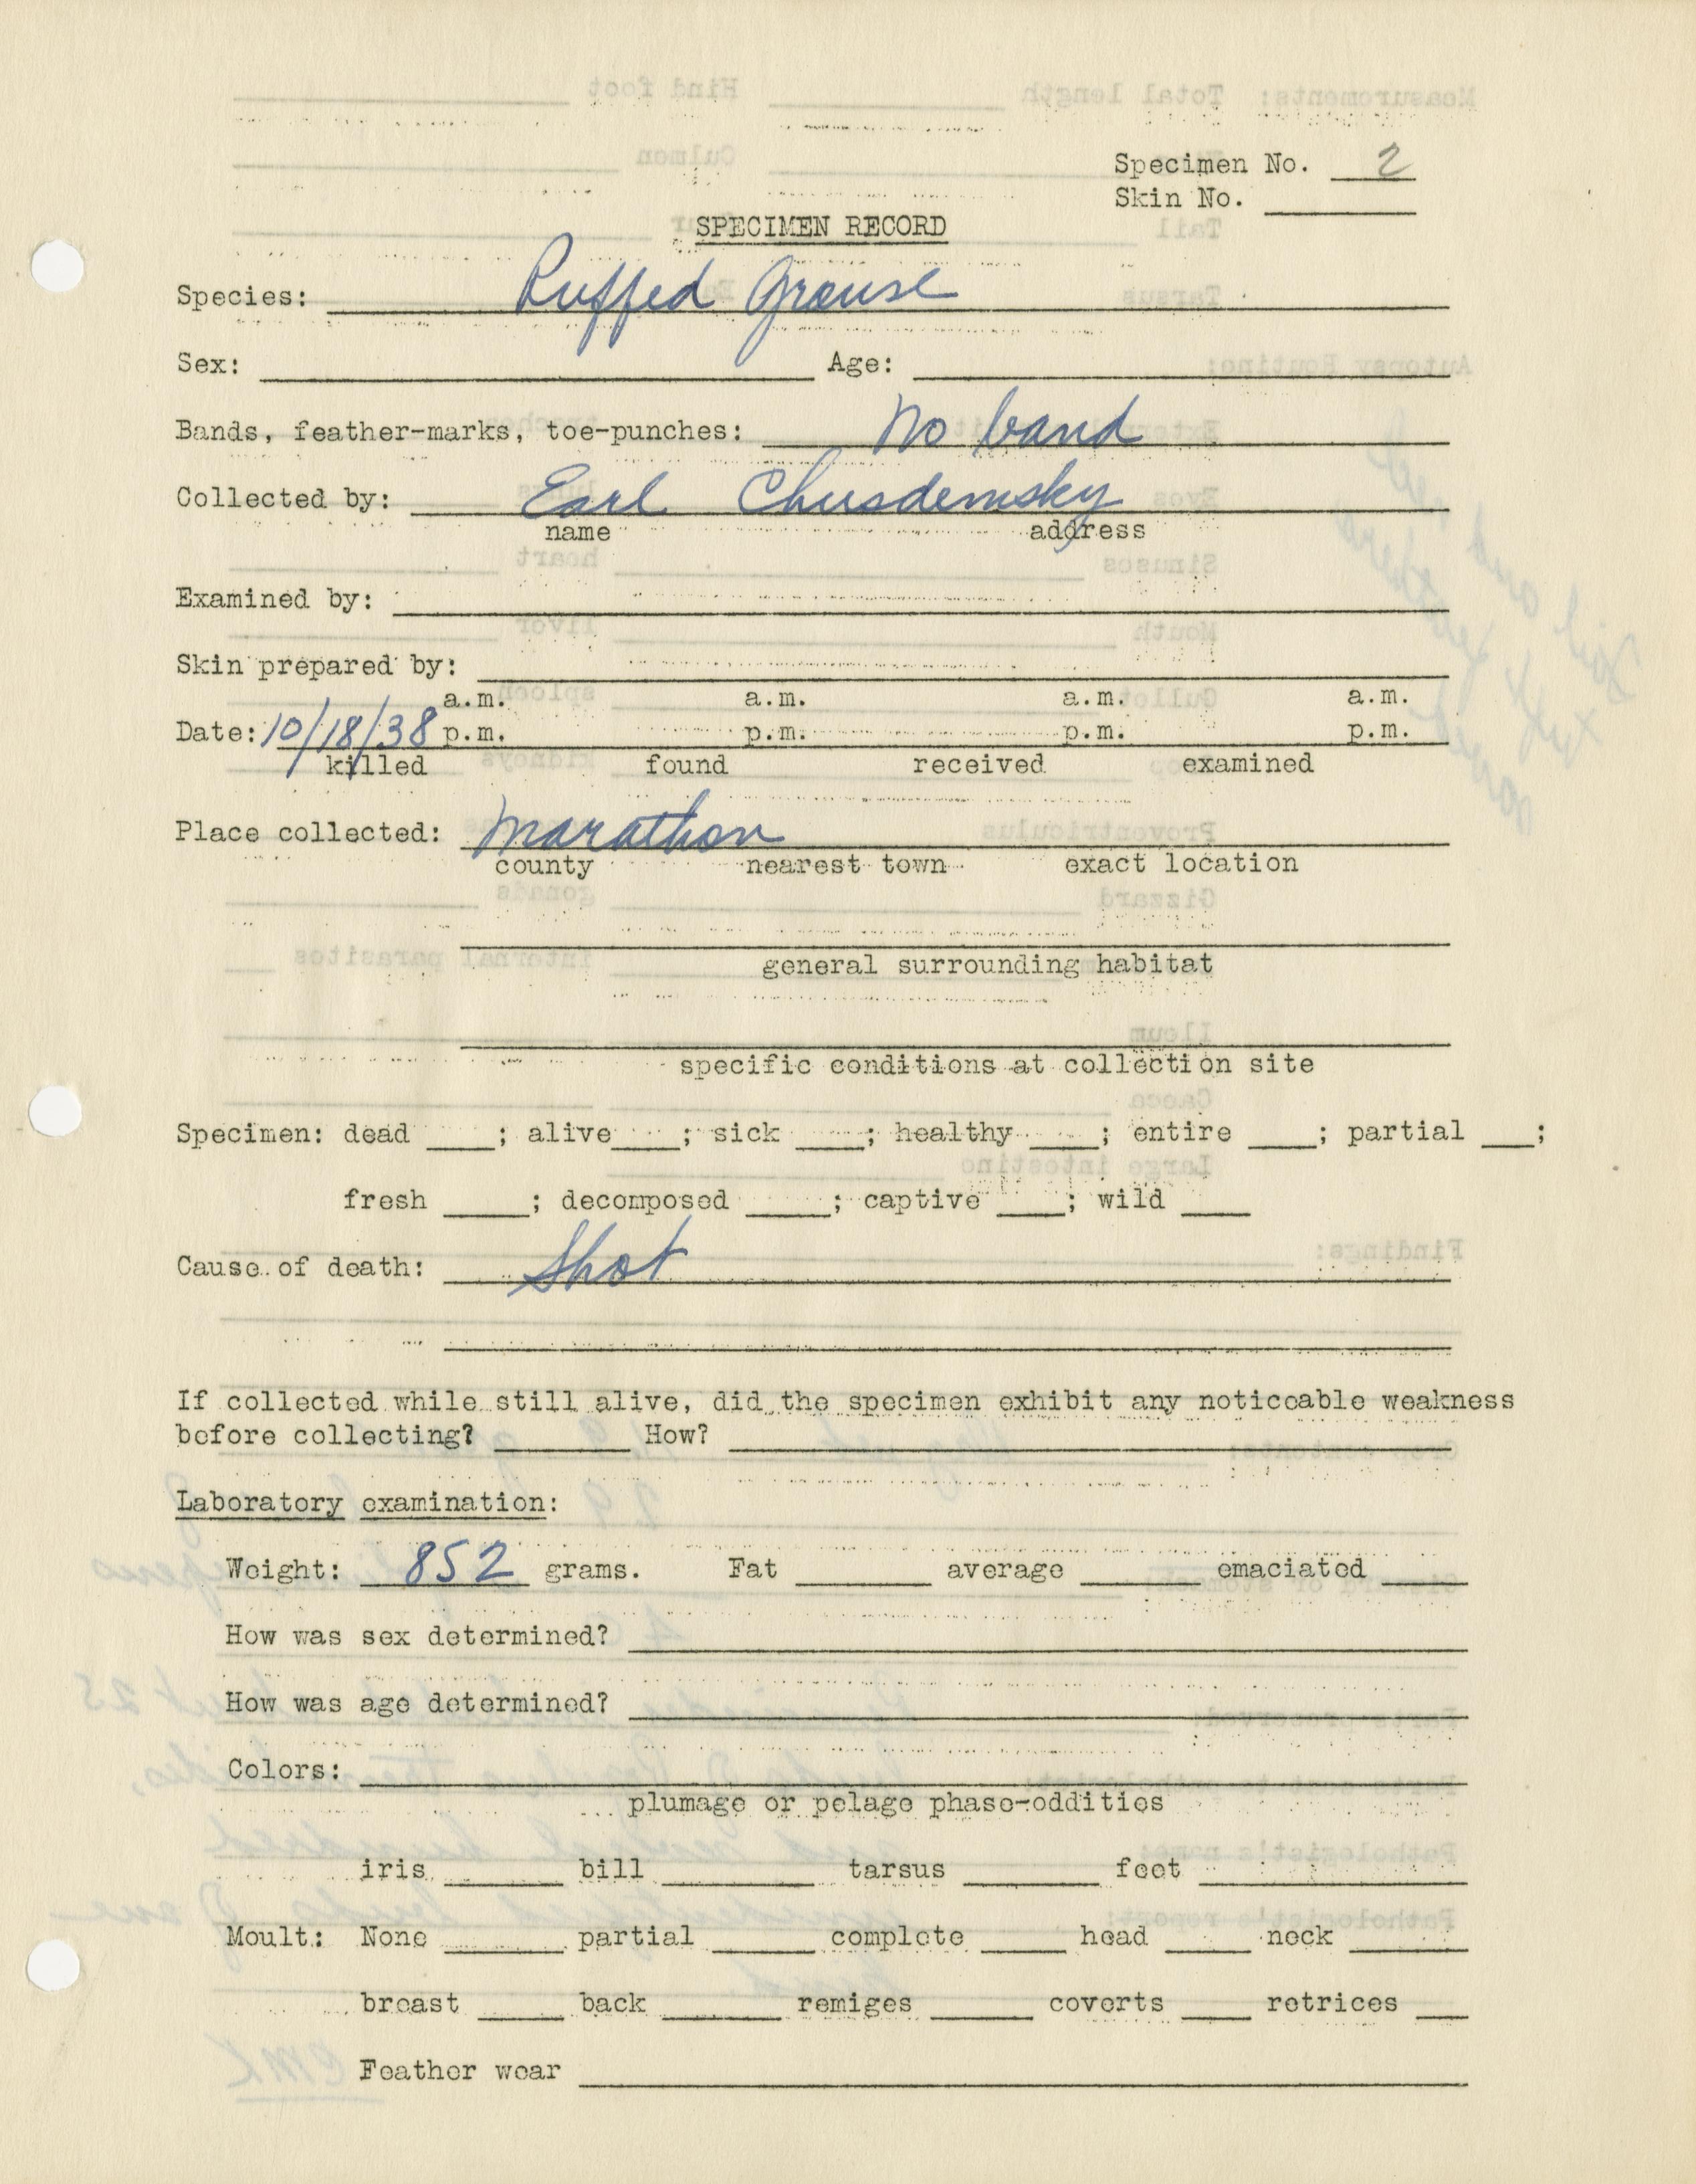 Specimen No. 2
Skin No.
SPECIMEN RECORD
Species: Ruffed Grouse
Sex: Age:
Bands, feather-marks, toe-punches: No band
Collected by: Earl Chusdemsky
name address
Examined by:
Skin prepared by:
a.m. a.m. a.m. a.m.
Date: 10/18/38 p.m. p.m. p.m. p.m.
killed found received examined
Place collected: Marathon
county nearest town exact location
general surrounding habitat
specific conditions at collection site
Specimen: dead ; alive ; sick ; healthy ; entire ; partial ;
fresh ; decomposed ; captive ; wild
Cause of death: Shot
If collected while still alive, did the specimen exhibit any noticeable weakness
before collecting? How?
Laboratory examination:
Weight: 852 grams. Fat average emaciated
How was sex determined?
How was age determined?
Colors:
plumage or pelage phase-oddities
iris bill tarsus feet
Moult: None partial complete head neck
breast back remiges coverts retrices
Feather wear